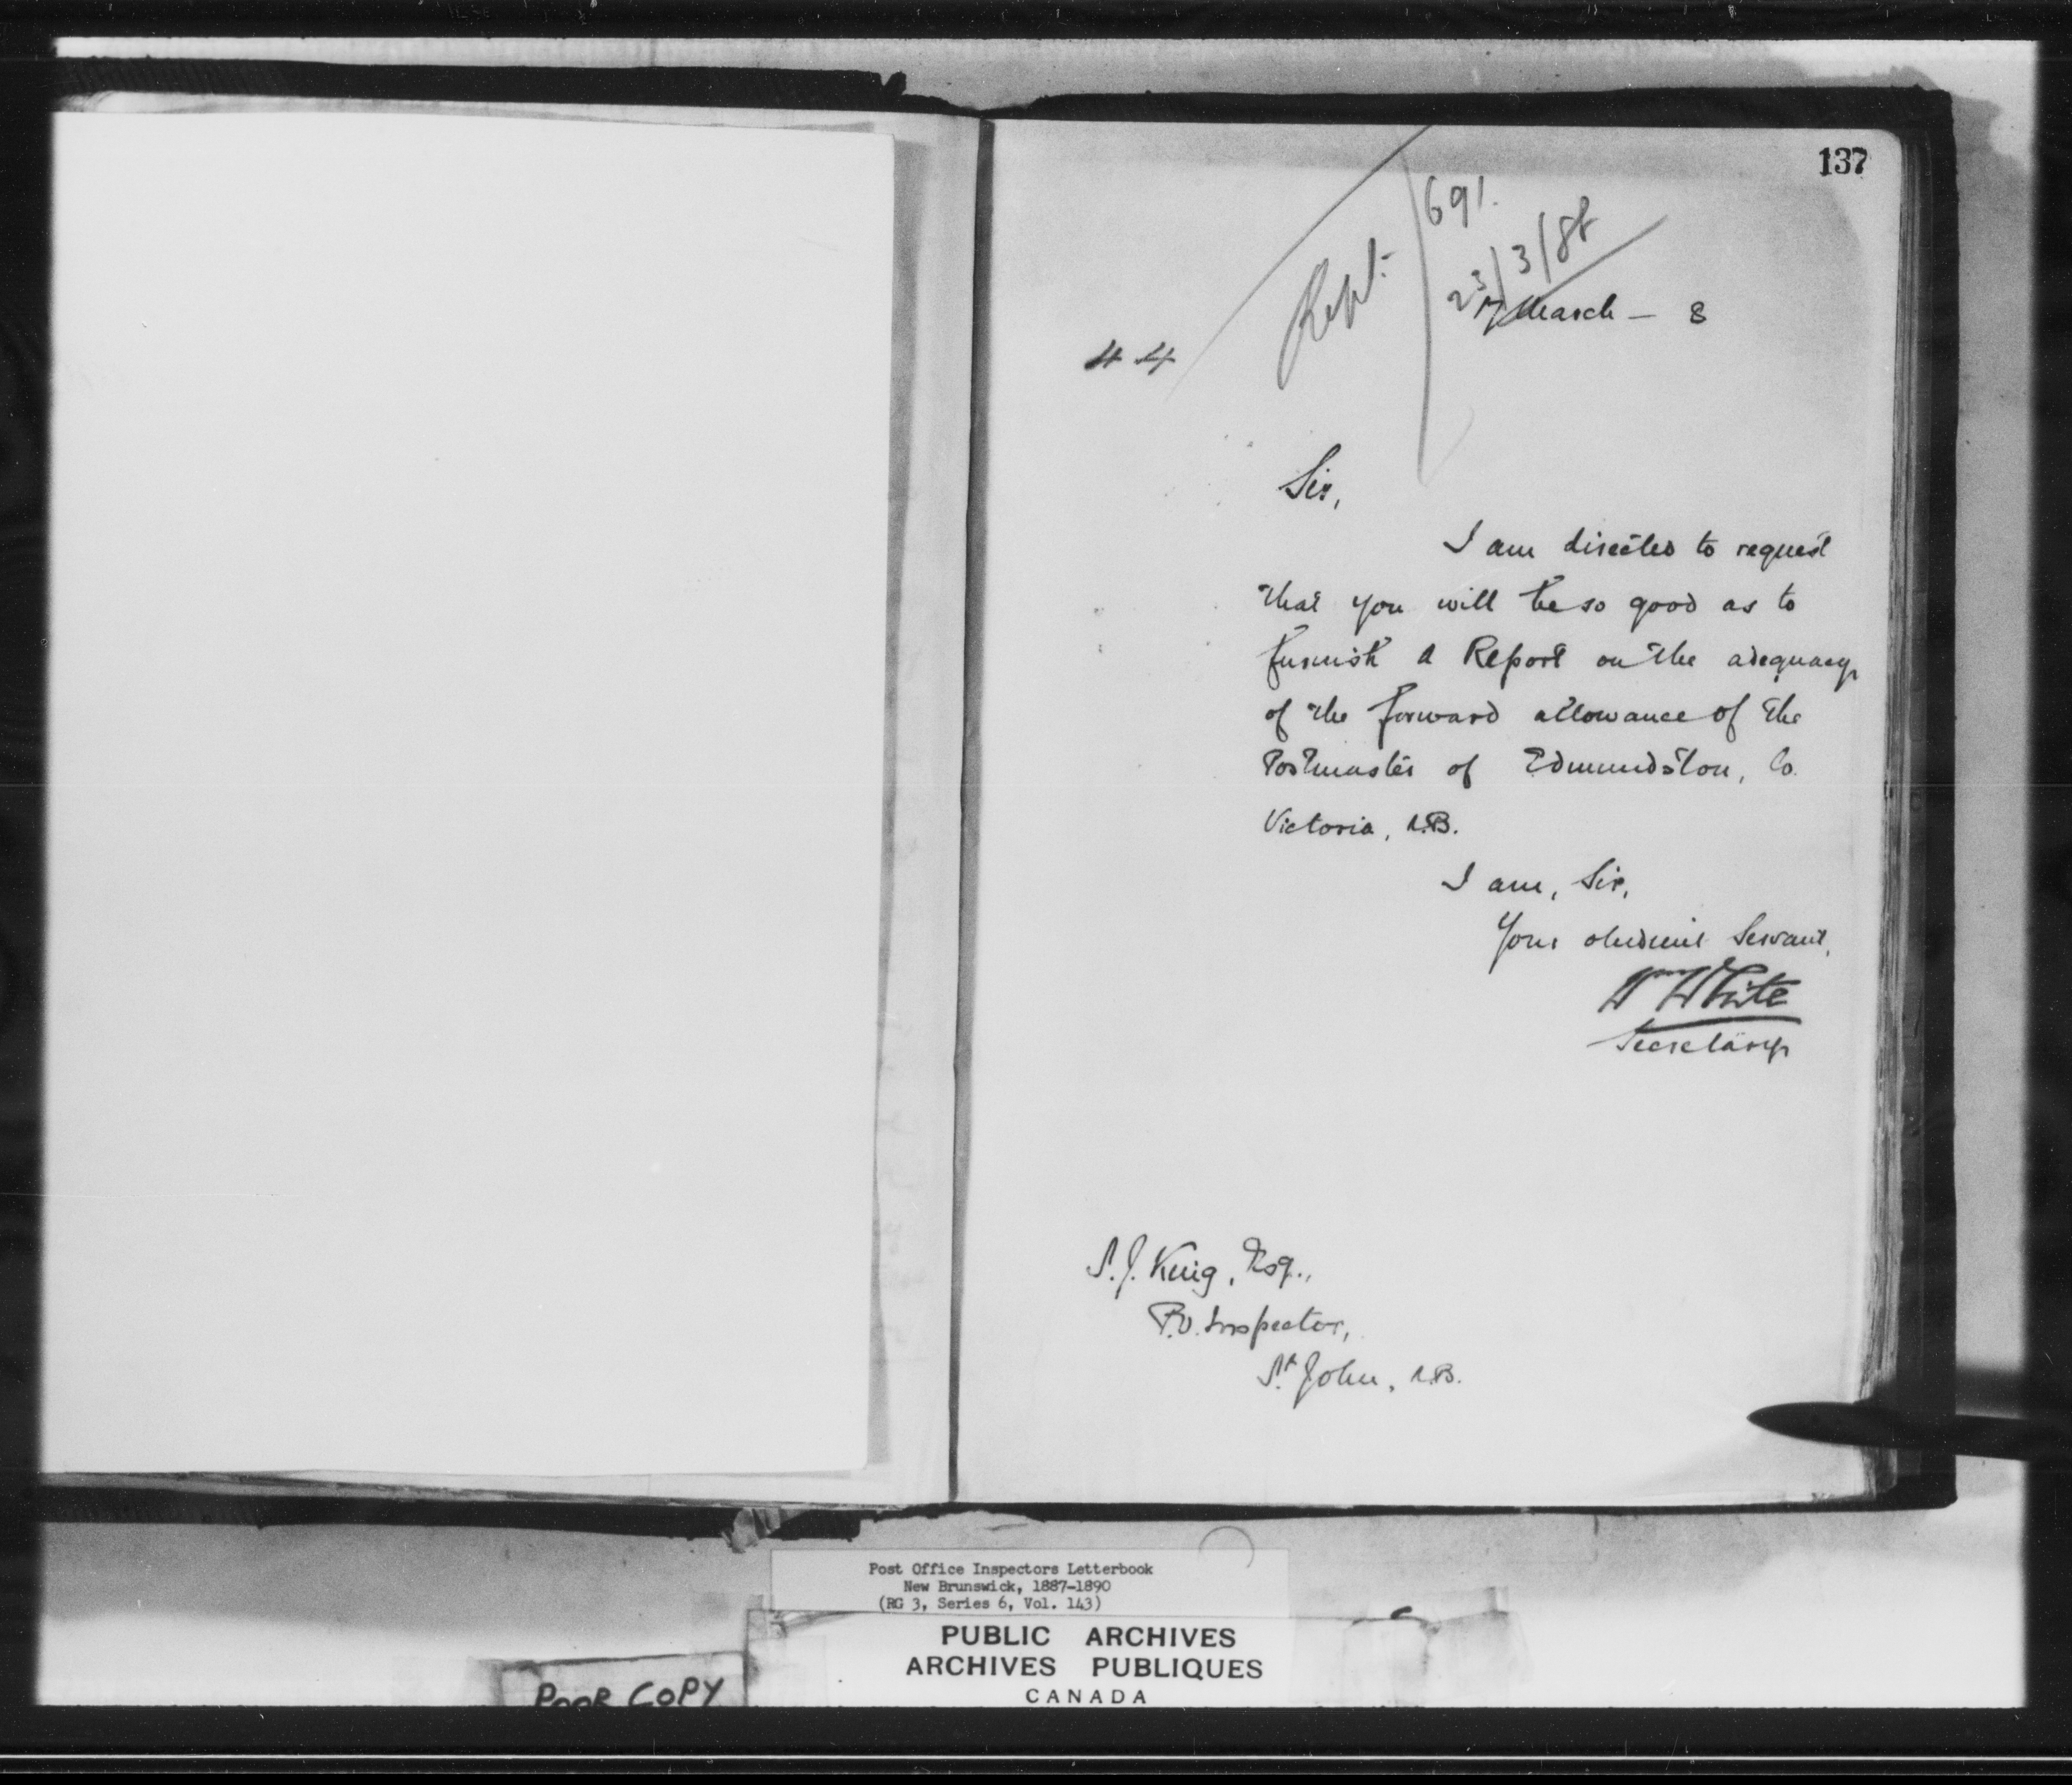 137
Rept. 691.
23/3/88
17 March — 8
44
Sir,
I am directed to request
that you will be so good as to
furnish a Report on the adequacy
of the forward allowance of the
Postmaster of Edmundston, Co.
Victoria, N.B.
I am, Sir,
Your obedient Servant,
Wm White
Secretary
S. J. King, Esq.,
P.O. Inspector,
St. John, N.B.
Post Office Inspectors Letterbook
New Brunswick, 1887-1890
(RG 3, Series 6, Vol. 143)
PUBLIC ARCHIVES
ARCHIVES PUBLIQUES
CANADA
POOR COPY